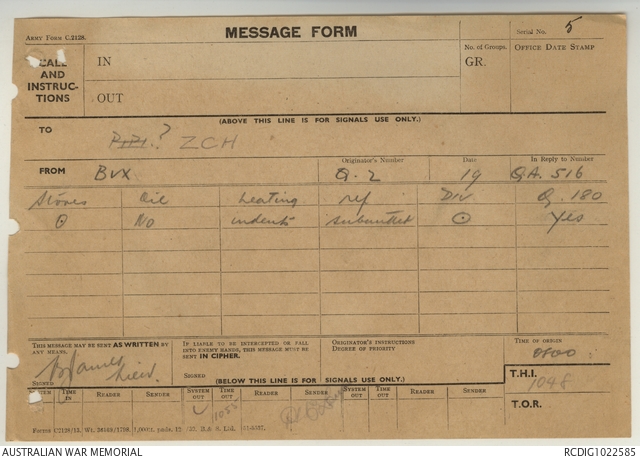 ARMY FORM C.2128.
MESSAGE FORM
Serial No. 5
CALL AND INSTRUCTIONS
IN
No. of Groups.
GR.
OFFICE DATE STAMP
OUT
(ABOVE THIS LINE IS FOR SIGNALS USE ONLY.)
TO
? ZCH
FROM BVX
Originator's Number Q.2
Date 19
In Reply to Number QA. 516
Stoves Oil heating ref DIV Q. 180
⊙ No indents submitted ⊙ Yes
THIS MESSAGE MAY BE SENT AS WRITTEN BY ANY MEANS.
SIGNED
IF LIABLE TO BE INTERCEPTED OR FALL INTO ENEMY HANDS, THIS MESSAGE MUST BE SENT IN CIPHER.
SIGNED
ORIGINATOR'S INSTRUCTIONS
DEGREE OF PRIORITY
TIME OF ORIGIN
(BELOW THIS LINE IS FOR SIGNALS USE ONLY.)
T.H.I. 1048
TIME IN READER SENDER SYSTEM OUT TIME OUT READER SENDER SYSTEM OUT TIME OUT READER SENDER
1055
T.O.R.
AUSTRALIAN WAR MEMORIAL
RCDIG1022585